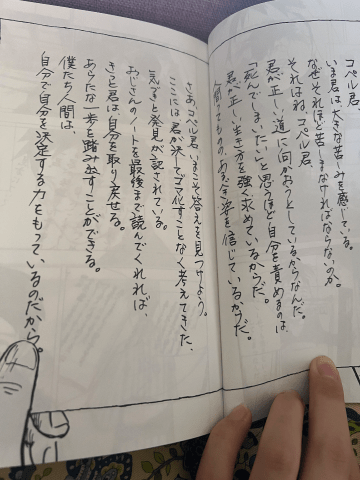 コペル君、
いま君は、大きな苦しみを感じている。
なぜそれほど苦しまなければならないのか。
それはね、コペル君、
君が正しい道に向かおうとしているからなんだ。
「死んでしまいたい」と思うほど自分を責めるのは、
君が正しい生き方を強く求めているからだ。
人間ってものの、あるべき姿を信じているからだ。
さあ、コペル君、いまこそ答えを見つけよう。
ここには君が決してゴマ化すことなく考えてきた、
気づきと発見が記されている。
おじさんのノートを最後まで読んでくれれば、
きっと君は自分を取り戻せる。
あらたな一歩を踏み出すことができる。
僕たち人間は、
自分で自分を決定する力をもっているのだから。